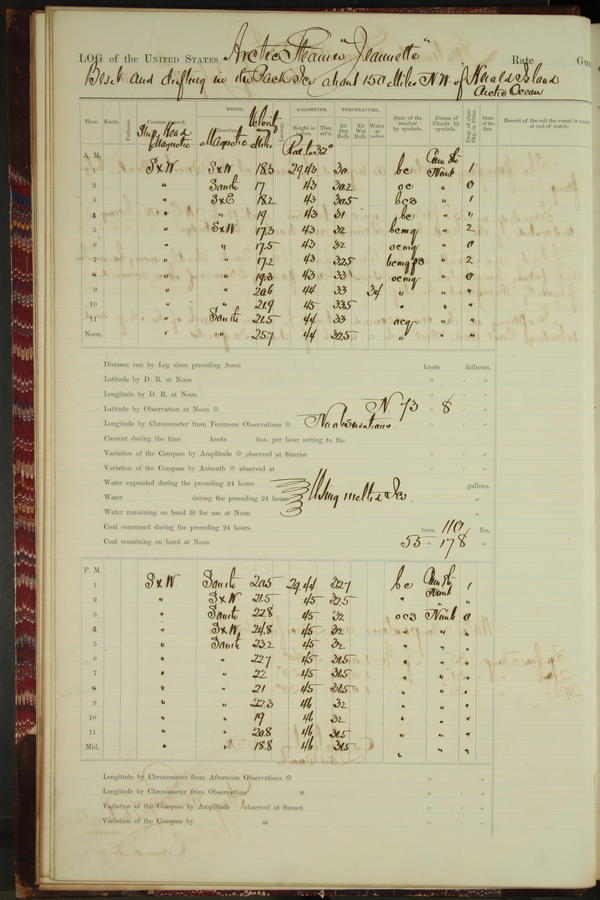 LOG of the UNITED STATES Arctic Steamer "Jeannette" Rate Gu
Beset and drifting in the Pack Ice about 150 Miles N.W. of Herald Island
Arctic Ocean
Hour. Knots. Fathoms. Courses steered. WINDS. Direction. Leeway. BAROMETER. Height in inches. Ther. att'd. TEMPERATURE. Air Dry Bulb. Air Wet Bulb. Water at surface. State of the weather by symbols. Forms of Clouds by symbols. Prop. of clear sky, in 10ths. State of the Sea. Record of the sail the vessel is under at end of watch.
Ship's Head Magnetic Magnetic Velocity Miles Red. to 32°
A. M.
1 S x W S x W 18.3 29.43 30 bc Cum St Nimb 1
2 " South 17 43 30.2 oc " 0
3 " S x E 18.2 43 30.5 bcs " 1
4 " " 19 43 31 bc " "
5 " S x W 17.3 43 32 bcmq " 2
6 " " 17.5 43 32 ocmq " 0
7 " " 17.2 43 32.5 bcmqps " 2
8 " " 19.3 43 33 ocmq " 0
9 " " 20.6 44 33 34 " " "
10 " " 21.9 45 33.5 " " "
11 " South 21.5 44 33 ocq " "
Noon. " " 25.7 44 32.5 " " "
Distance run by Log since preceding Noon knots fathoms.
Latitude by D. R. at Noon ° ' "
Longitude by D. R. at Noon ° ' "
Latitude by Observation at Noon N. 73 ° 8 ' "
Longitude by Chronometer from Forenoon Observations No observations ° ' "
Current during the time knots fms. per hour setting to the
Variation of the Compass by Amplitude observed at Sunrise ° ' "
Variation of the Compass by Azimuth observed at ° ' "
Water expended during the preceding 24 hours gallons.
Water during the preceding 24 hours Using melted Ice "
Water remaining on hand fit for use at Noon "
Coal consumed during the preceding 24 hours tons. 1101 lbs.
Coal remaining on hand at Noon 55 " 178 "
P. M.
1 S x W South 20.5 29.44 32.7 bc Cum St Nimb 1
2 " S x W 21.5 45 32.5 " " "
3 " South 22.8 45 32 ocs Nimb 0
4 " S x W 24.8 45 32 " " "
5 " South 23.2 45 32 " " "
6 " " 22.7 45 31.5 " " "
7 " " 22 45 31.5 " " "
8 " " 21 45 31.5 " " "
9 " " 22.3 46 32 " " "
10 " " 19 46 32 " " "
11 " " 20.8 46 31.5 " " "
Mid. " " 18.8 46 31.5 " " "
Longitude by Chronometer from Afternoon Observations ° ' "
Longitude by Chronometer from Observations ° ' "
Variation of the Compass by Amplitude observed at Sunset ° ' "
Variation of the Compass by at ° ' "